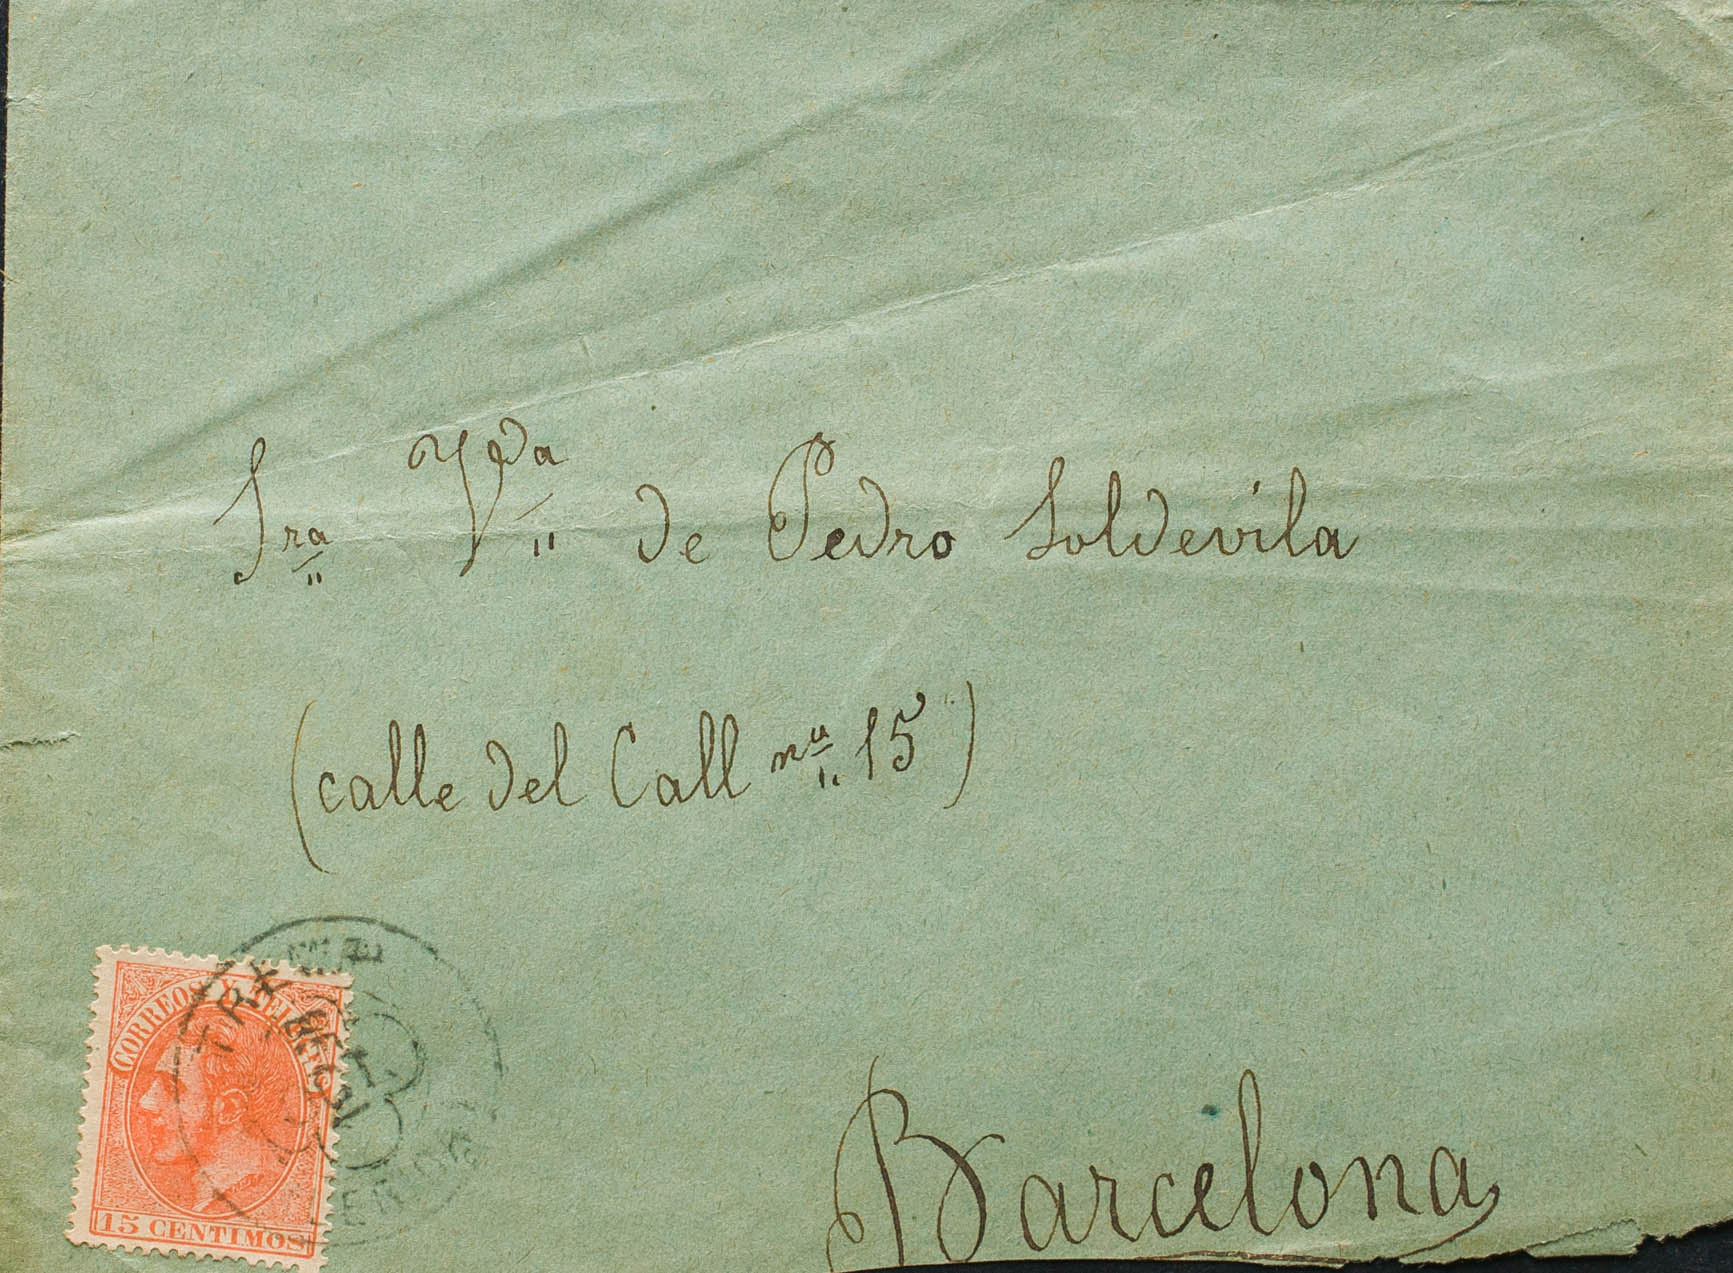 Sra Vda de Pedro Soldevila
(calle del Call nu 15)
Barcelona
CORREOS Y TELEGFS
15 CENTIMOS
TREMP
LERIDA